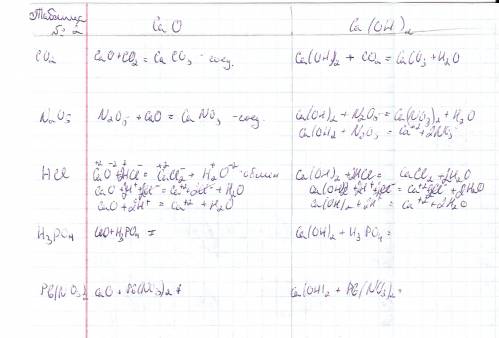 Таблица
№ 2
CaO
Ca(OH)2
CO2
CaO+CO2 = CaCO3 - соед.
Ca(OH)2 + CO2 = CaCO3 + H2O
N2O5
N2O5 + CaO = CaNO3 - соед.
Ca(OH)2 + N2O5 = Ca(NO3)2 + H2O
Ca(OH)2 + N2O5 = Ca+2 + 2NO3
HCl
CaO + 2HCl = CaCl2 + H2O - обмен
Ca(OH)2 + 2HCl = CaCl2 + 2H2O
CaO + 2H+ + 2Cl- = Ca+2 + 2Cl- + H2O
CaO + 2H+ = Ca+2 + H2O
Ca(OH)2 + 2H+ = Ca+2 + 2H2O
H3PO4
CaO + H3PO4 =
Ca(OH)2 + H3PO4 =
CaO + Pb(NO3)2
Ca(OH)2 + Pb(NO3)2 =